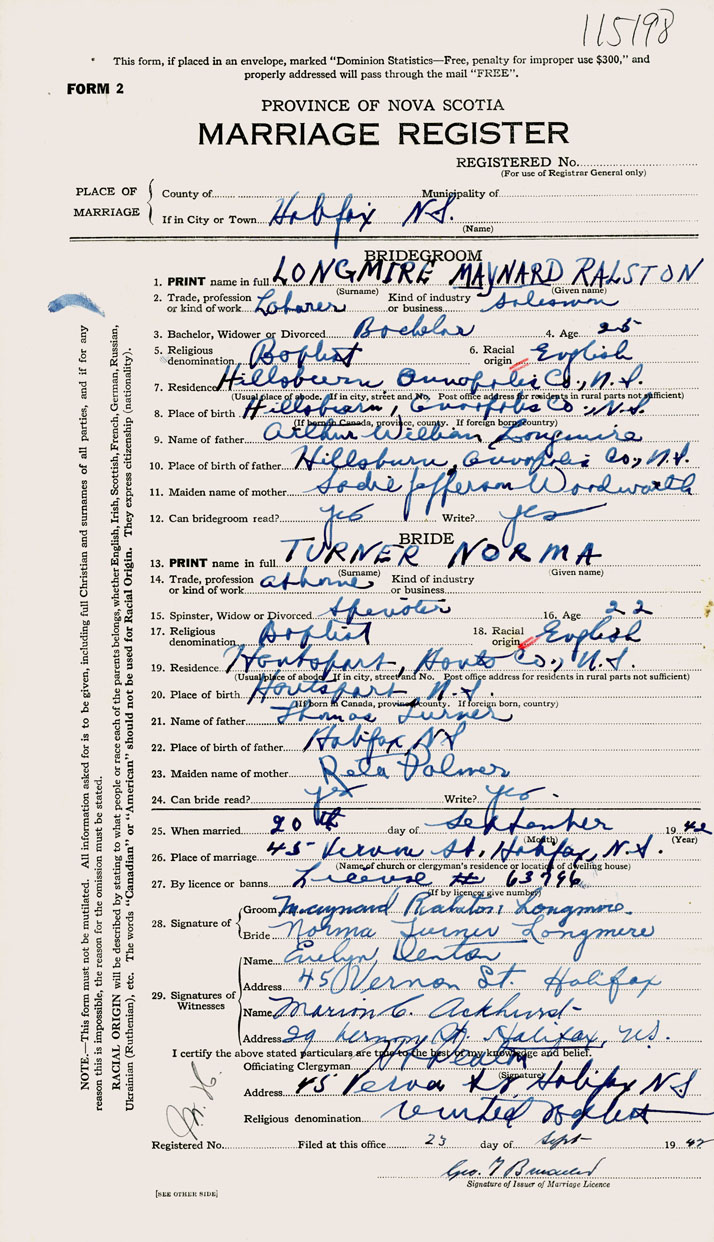 115198
This form, if placed in an envelope, marked "Dominion Statistics—Free, penalty for improper use $300," and
properly addressed will pass through the mail "FREE".
FORM 2
PROVINCE OF NOVA SCOTIA
MARRIAGE REGISTER
REGISTERED No.
(For use of Registrar General only)
PLACE OF MARRIAGE
County of Municipality of
If in City or Town Halifax N.S.
(Name)
BRIDEGROOM
1. PRINT name in full LONGMIRE MAYNARD RALSTON
(Surname) (Given name)
2. Trade, profession or kind of work Laborer Kind of industry or business salesman
3. Bachelor, Widower or Divorced Bachelor 4. Age 25
5. Religious denomination Baptist 6. Racial origin English
7. Residence Hillsburn, Annapolis Co., N.S.
(Usual place of abode. If in city, street and No. Post office address for residents in rural parts not sufficient)
8. Place of birth Hillsburn, Annapolis Co., N.S.
(If born in Canada, province, county. If foreign born, country)
9. Name of father Arthur William Longmire
10. Place of birth of father Hillsburn, Annapolis Co., N.S.
11. Maiden name of mother Sadie Jefferson Woodworth
12. Can bridegroom read? yes Write? yes
BRIDE
13. PRINT name in full TURNER NORMA
(Surname) (Given name)
14. Trade, profession or kind of work at home Kind of industry or business
15. Spinster, Widow or Divorced Spinster 16. Age 22
17. Religious denomination Baptist 18. Racial origin English
19. Residence Hantsport, Hants Co., N.S.
(Usual place of abode. If in city, street and No. Post office address for residents in rural parts not sufficient)
20. Place of birth Hantsport N.S.
(If born in Canada, province, county. If foreign born, country)
21. Name of father Thomas Turner
22. Place of birth of father Halifax NS
23. Maiden name of mother Reta Palmer
24. Can bride read? yes Write? yes.
25. When married 20th day of September 1942
(Month) (Year)
26. Place of marriage 45 Vernon St, Halifax, N.S.
(Name of church or clergyman's residence or location of dwelling house)
27. By licence or banns License # 63796
(If by licence give number)
28. Signature of Groom Maynard Ralston Longmire.
Bride Norma Turner Longmire
29. Signatures of Witnesses
Name Evelyn Denton
Address 45 Vernon St. Halifax
Name Marion C. Ackhurst
Address 29 St. Halifax, N.S.
I certify the above stated particulars are true to the best of my knowledge and belief.
Officiating Clergyman
(Signature)
Address 45 Vernon St Halifax NS
Religious denomination United Baptist
Registered No. Filed at this office 23 day of Sept 1942
Geo. T
Signature of Issuer of Marriage Licence
[SEE OTHER SIDE]
NOTE.—This form must not be mutilated. All information asked for is to be given, including full Christian and surnames of all parties, and if for any
reason this is impossible, the reason for the omission must be stated.
RACIAL ORIGIN will be described by stating to what people or race each of the parents belongs, whether English, Irish, Scottish, French, German, Russian,
Ukrainian (Ruthenian), etc. The words "Canadian" or "American" should not be used for Racial Origin. They express citizenship (nationality).